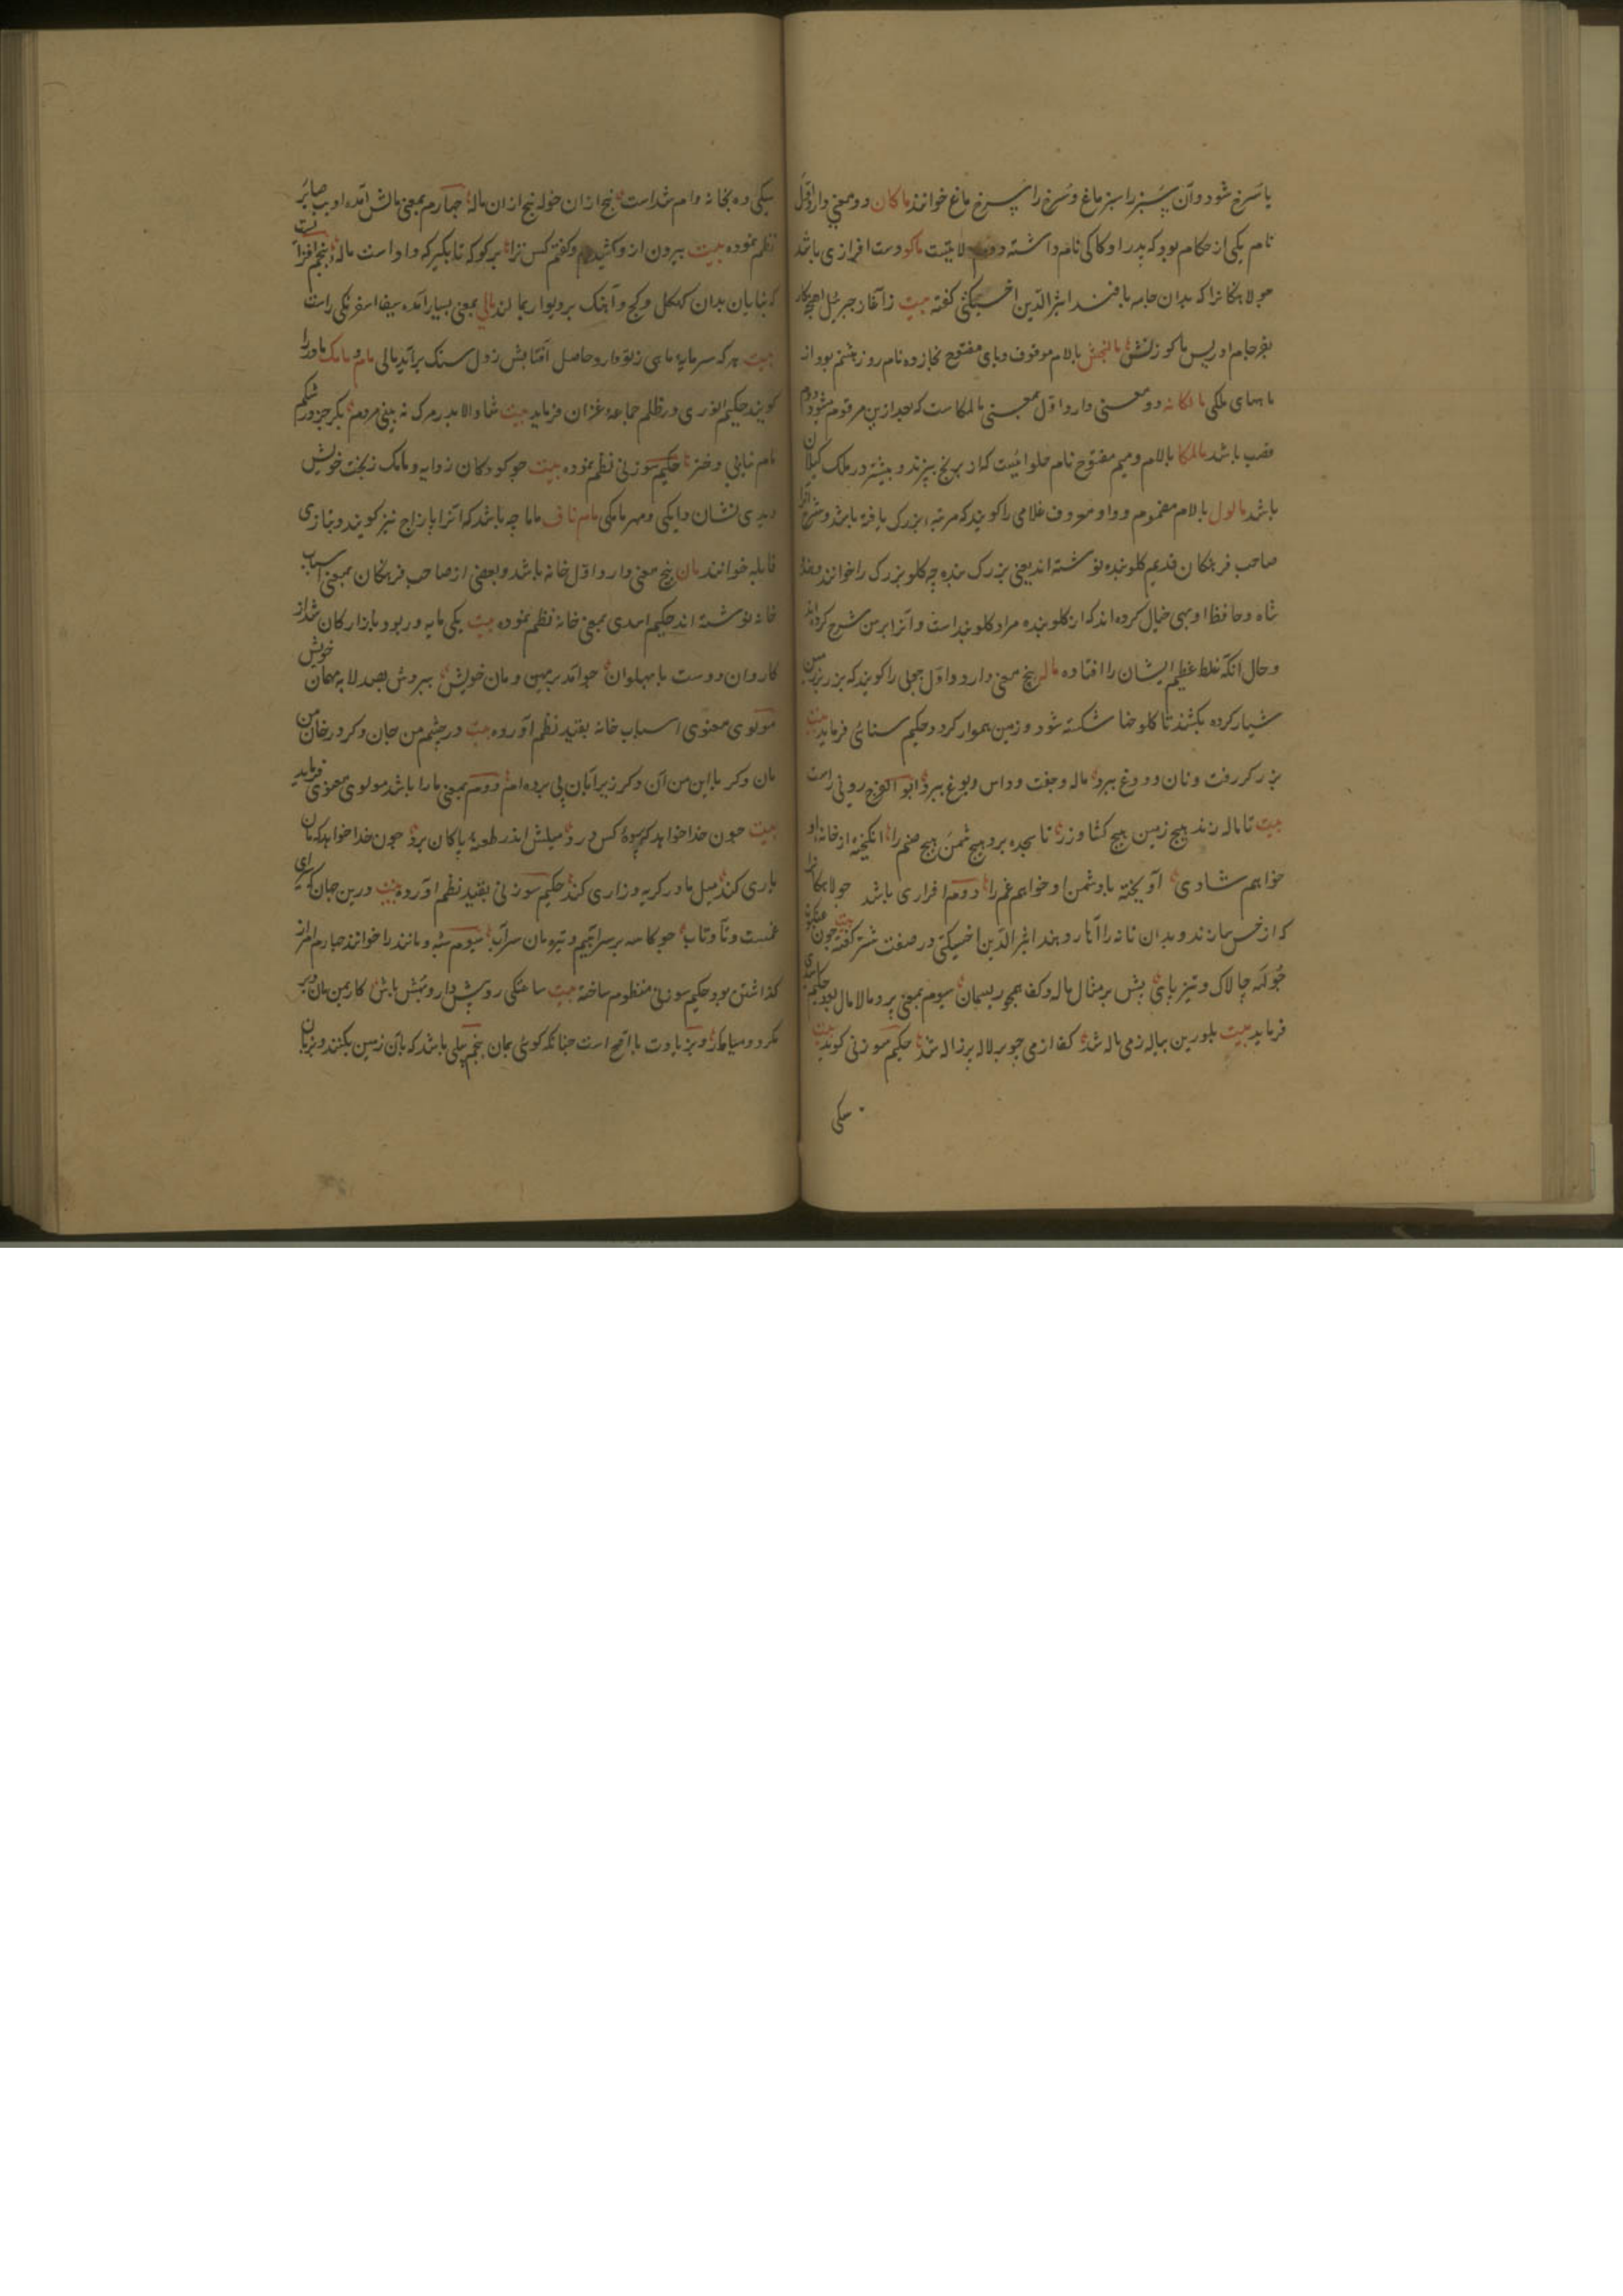 یا سرخ شود و آن پسبز را سبز ماغ و سرخ را سرخ ماغ خوانند ماکان دو معنی دارد اول
نام یکی از حکام بود که پدر او کاکی نام داشته دوم ولایتیست ماکو دست افرازی باشد
جولاهکانرا که بدان جامه بافند اثیر الدین اخسیکتی کفته بیت ز آغاز جبرئیل
بفرجام ادریس ماکو زنش مالنجش بالام موقوف و بای مفتوح نام روز هشتم بود از
ماههای ملکی مالکانه دو معنی دارد اول بمعنی مالکا است که بعد ازین مرقوم میشود دوم
قصب باشد مالکا بالام و میم مفتوح نام حلوائیست که از برنج بپزند و بیشتر در ملک کیلان
باشد مالول بالام مضموم و واو معروف غلامی را کویند که مرتبه بزرک یافته باشد و شرح آنرا
صاحب فرهنکان قدیم کلو بنده نوشته اند یعنی بزرک بنده چه کلو بزرک را خوانند
شاه و حافظ اوبهی خیال کرده اند که از کلو بنده مراد کلوبند است و آنرا برین شرح کرده اند
و حال آنکه غلط عظیم ایشان را افتاده ماله پنج معنی دارد و اول چوبی را کویند که برزیر زمین
شیار کرده بکشند تا کلوخها شکسته شود و زمین هموار کردد حکیم سنائی فرماید بیت
بزرکر رفت و نان و دوغ ببرد ماله و جفت و داس و یوغ ببرد ابو الفرج رونی راست
بیت تا ماله زند هیچ زمین هیچ کشاورز تا سجده برد هیچ شمن هیچ صنم را انکیخته از خانه او
خواهم شادی آویخته با دشمن او خواهم غم را دوم افزاری باشد جولاهکانرا
که از خس سازند و بدان تانه را آهار دهند اثیر الدین اخسیکتی در صفت شتر کفته بیت چون عنکبوت
جوله چالاک و تیز پای پشش بر مثال ماله و کف همچو ریسمان سیوم بمعنی پر و مالامال بود حکیم اسدی
فرماید بیت بلورین پیاله ز می ماله شد کف از می چو بر لاله بر ژاله شد حکیم سوزنی کوید بیت
یکی
یکی ده بخانه وام شد است پنج از ان خوله پنج از ان ماله چهارم بمعنی مالش آمده ادیب صابر
نظم نموده بیت بیرون از و کشیدم و کفتم کس ترا بر کو که تا بکیر که داد است مالش پنجم افزاریست
که بنایان بدان کهکل و کچ و آهک بر دیوار بمالند مالی بمعنی بسیار آمده سیف اسفرنکی راست
بیت هر که سرمایه مالی ز تو دارد حاصل آفتابش ز دل سنک بر آید مالی مام و مامک مادر را
کویند حکیم انوری در ظلم جماعه غزان فرماید بیت شاد الا بدر مرک نه بینی مردم بکر جز در شکم
مام نیابی دختر حکیم سوزنی نظم نموده بیت چو کودکان ز دایه و مامک ز بخت خویش
دیدی نشان دایکی و مهر مامکی مام ناف ماما چه باشد که آنرا بازاج نیز کویند و بتازی
قابله خوانند مان پنج معنی دارد اول خانه باشد و بعضی از صاحب فرهنکان بمعنی اسباب
خانه نوشته اند حکیم اسدی بمعنی خانه نظم نموده بیت یکی مایه ور بود بازارکان شد از
کاروان دوست با پهلوان چو آمد بر میهن و مان خویش ببردش بصد لابه مهمان خویش
مولوی معنوی اسباب خانه بقید نظم آورده بیت در چشم من جان دکر در خان من
مان دکر با این من آن دکر زیرا بان پی برده ام دوم بمعنی ما را باشد مولوی معنوی فرماید
بیت چون خدا خواهد که پرده کس درد میلش اندر طعنه پاکان برد چون خدا خواهد که مان
یاری کند میل ما در کریه و زاری کند حکیم سوزنی بقید نظم آورده بیت درین جهان که سرای
غمست و تأ و تاب چو کاسه بر سر آبیم و تیره مان سر آب سیوم شبه و مانند را خوانند چهارم امر از
کذاشتن بود حکیم سوزنی منظوم ساخته بیت
پنجم بیلی باشد که بآن زمین بکنند و بزبان